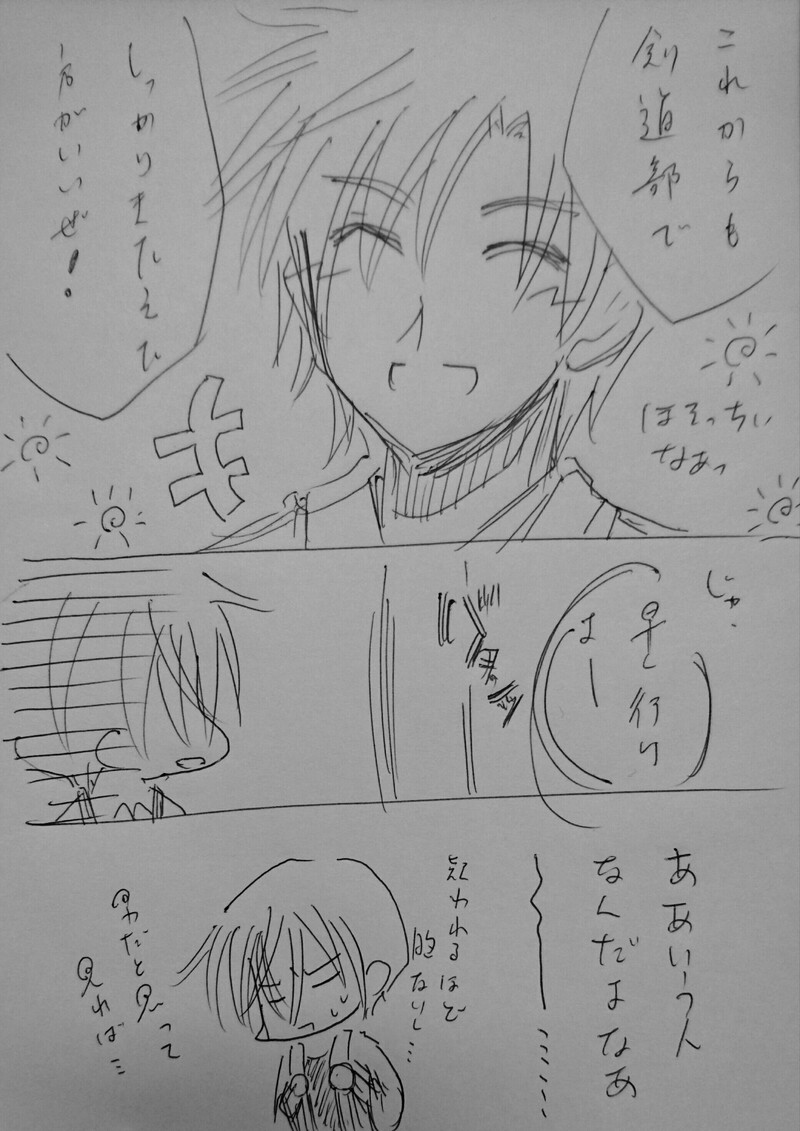 これからも
剣道部で
しっかりきたえた
方がいいぜ!
ほそっちぃ
なあっ
キ
じゃ、
早く行り
はー
ああいうん
なんだよなあ
疑われるほど
的ないし…
男だと思って
見れば…